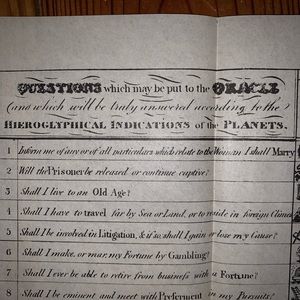 QUESTIONS which may be put to the ORACLE
(and which will be truly answered according to the
HIEROGLYPHICAL INDICATIONS of the PLANETS.
1 Inform me of any or of all particulars which relate to the Woman I shall Marry
2 Will the Prisoner be released or continue captive?
3 Shall I live to an Old Age?
4 Shall I have to travel far by Sea or Land, or to reside in foreign Climes
5 Shall I be involved in Litigation, & if so, shall I gain or lose my Cause?
6 Shall I make, or mar, my Fortune by Gambling?
7 Shall I ever be able to retire from business with a Fortune?
8 Shall I be eminent and meet with Preferment in my Pursuits?